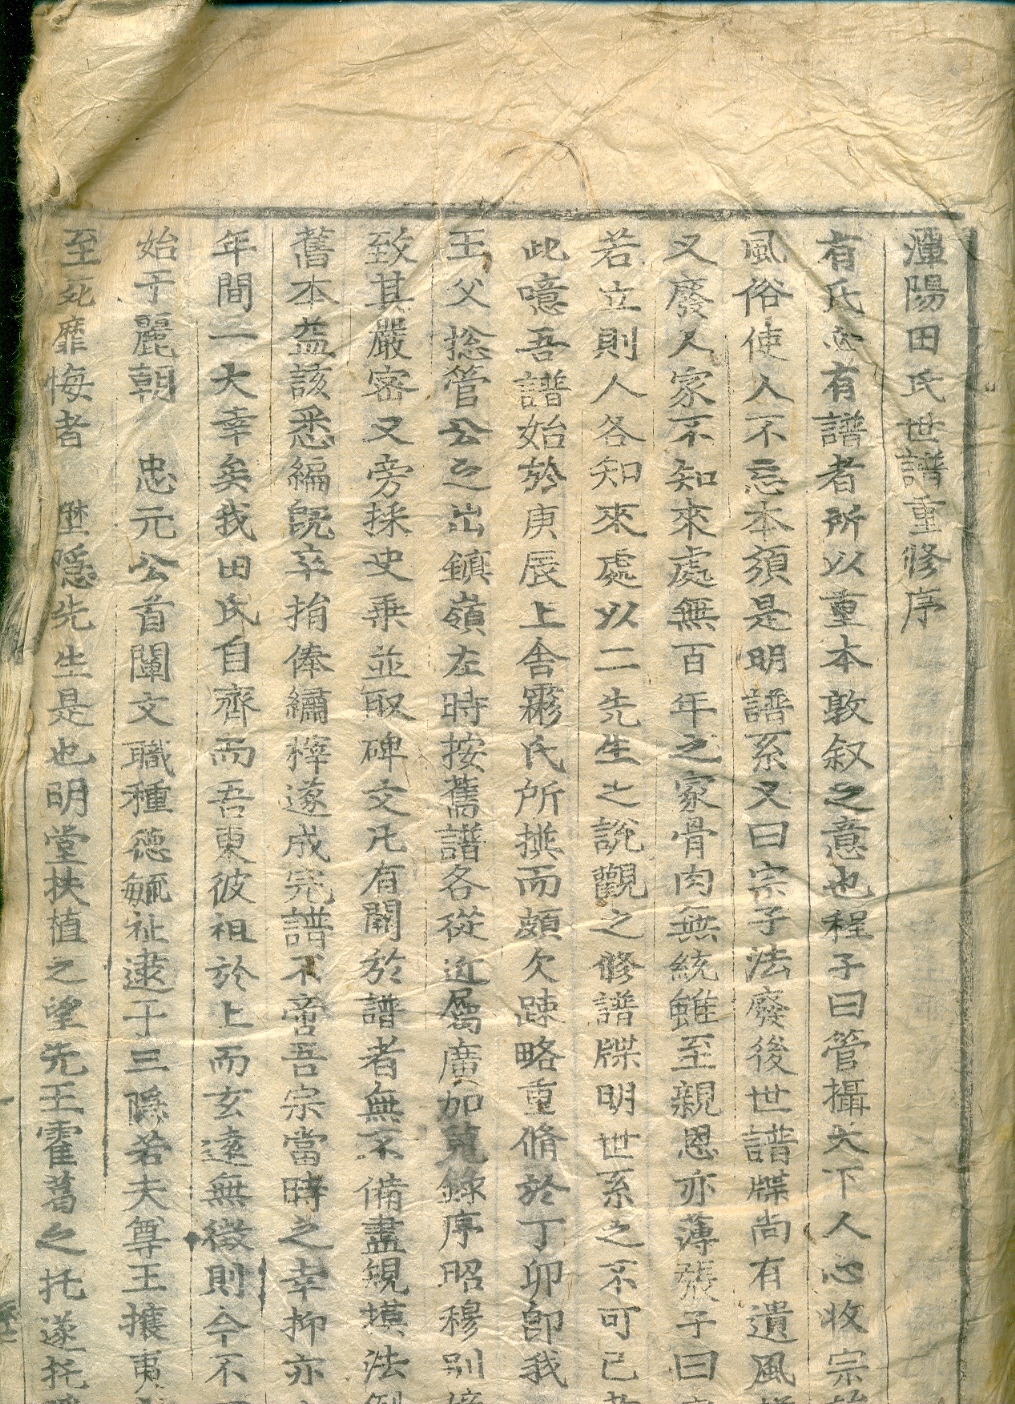 潭陽田氏世譜重修序
有氏必有譜者所以重本敦叙之意也程子曰管攝天下人心收宗
風俗使人不忘本須是明譜系又曰宗子法廢後世譜牒尚有遺風
又廢人家不知來處無百年之家骨肉無統雖至親恩亦薄張子曰
若立則人各知來處以二先生之說觀之修譜牒明世系之不可已
此噫吾譜始於庚辰上舍霦氏所撰而頗欠踈略重脩於丁卯卽我
王父捴管公之出鎮嶺左時按舊譜各從近屬廣加蒐錄序昭穆别
致其嚴密又旁採史乘並取碑文凡有關於譜者無不備盡規模法
舊本益該悉編旣卒捐俸繡梓遂成完譜不啻吾宗當時之幸抑亦
年間二大幸矣我田氏自齊而吾東彼祖於上而玄遠無徵則今不
始于麗朝 忠元公首闡文職種德毓祉逮于三隱若夫尊王攘夷
至死靡悔者 壄隱先生是也明堂扶植之望先王霍葛之托遂托